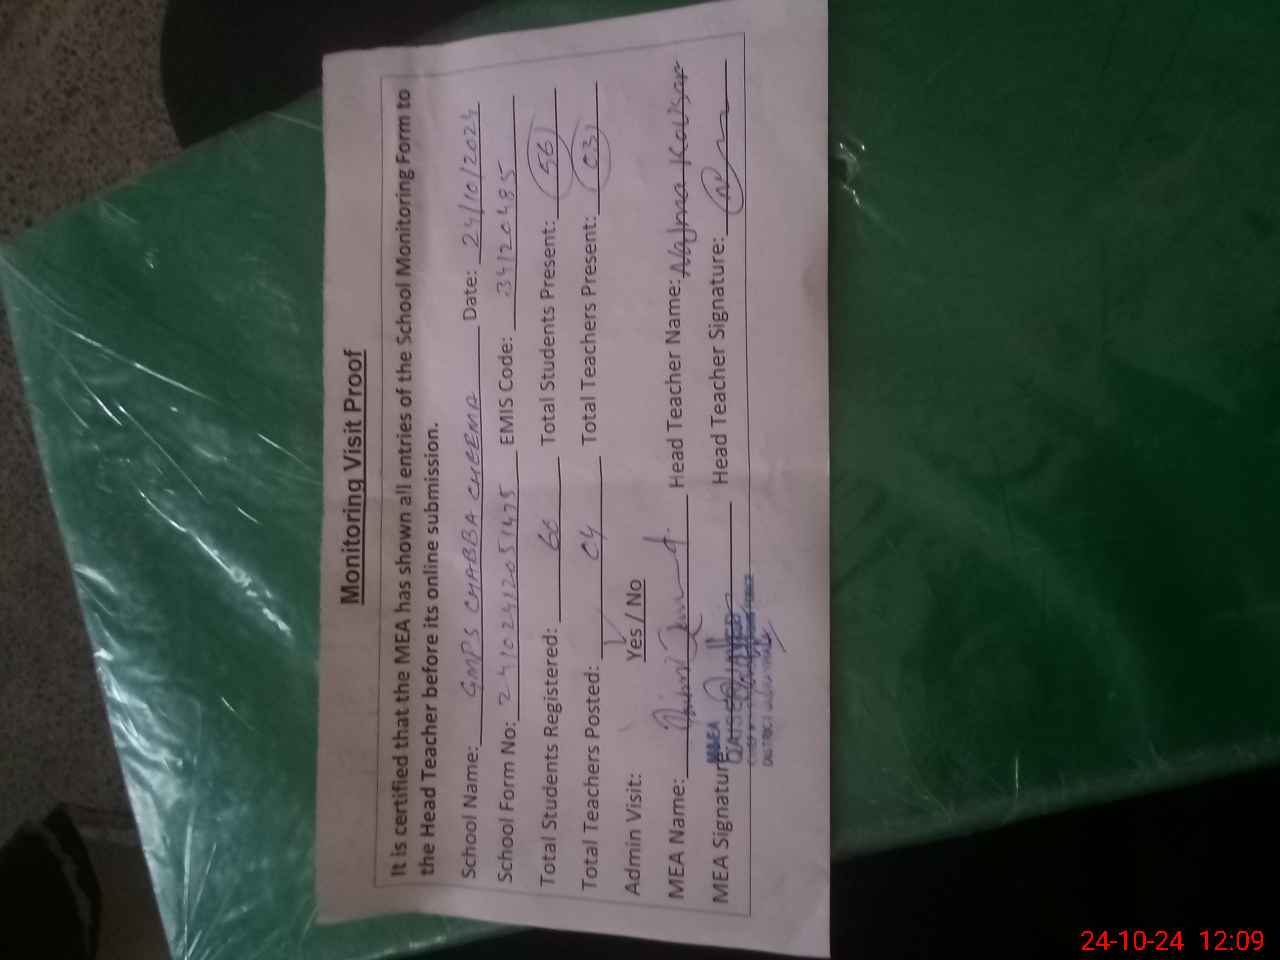 Monitoring Visit Proof
It is certified that the MEA has shown all entries of the School Monitoring Form to
the Head Teacher before its online submission.
School Name: GMPS CHABBA CHEEMA Date: 24/10/2024
School Form No: 24102412051475 EMIS Code: 34120485
Total Students Registered: 60 Total Students Present: 56
Total Teachers Posted: 04 Total Teachers Present: 03
Admin Visit: Yes / No
MEA Name: Head Teacher Name: Najma Kausar
MEA Signature Head Teacher Signature:
MEA
DISTRICT
24-10-24 12:09